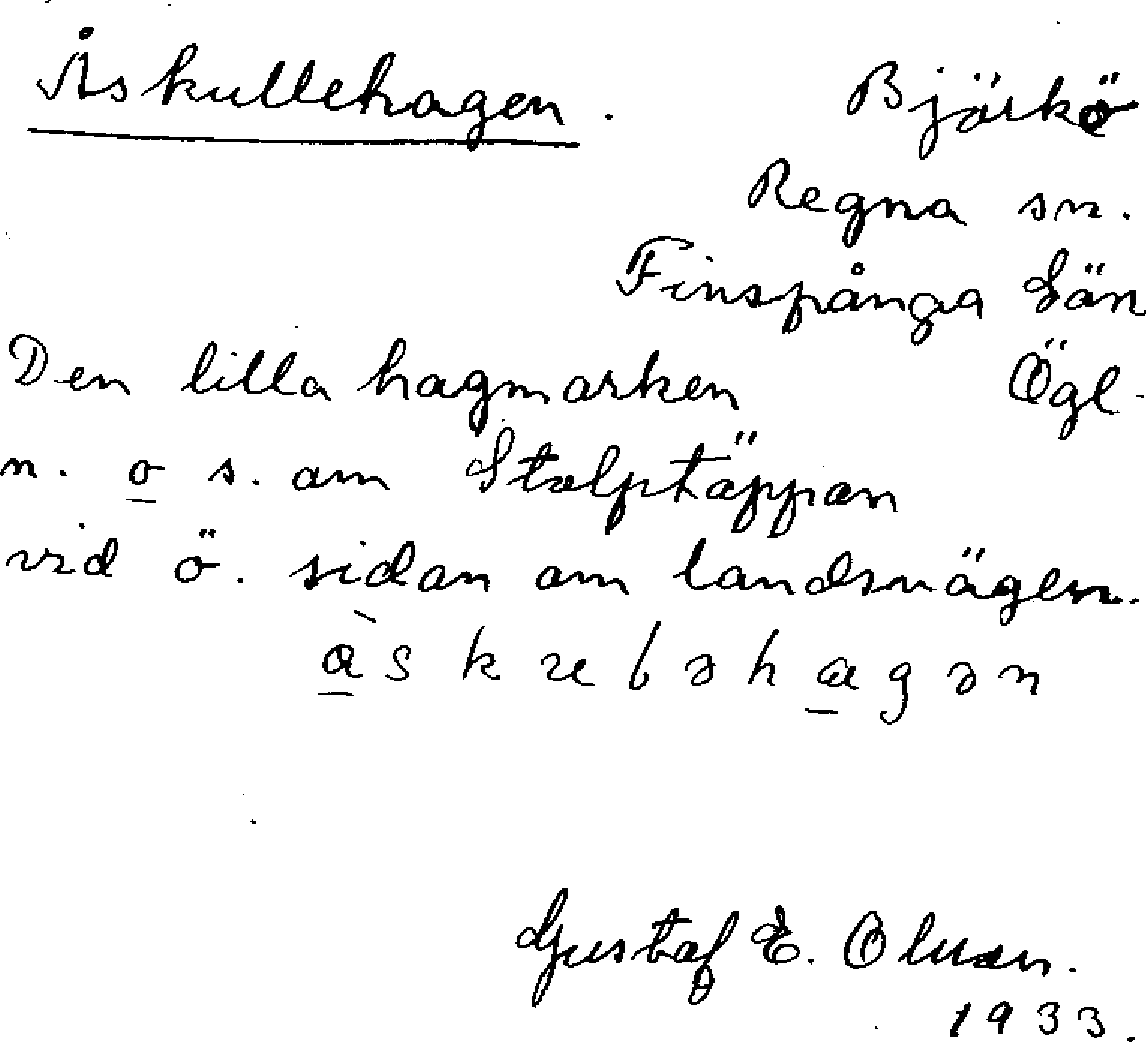 Åskullehagen. Björkö
Regna sn.
Finspånga Län
Den lilla hagmarken Ögl.
n. o s. om Stolptäppan
vid ö. sidan om landsvägen.
Gustaf E.
1933.